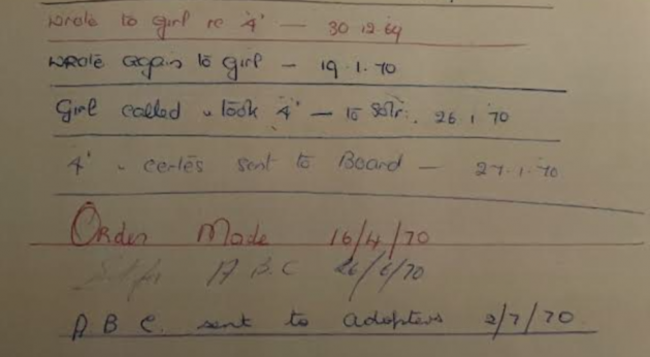 Wrote to girl re 4' — 30.12.69
Wrote again to girl — 19.1.70
Girl called & took 4' — to Solr. 26.1.70
4' & certes sent to Board — 27.1.70
Order Made 16/4/70
A B.C 26/6/70
A B C. sent to adopters 2/7/70